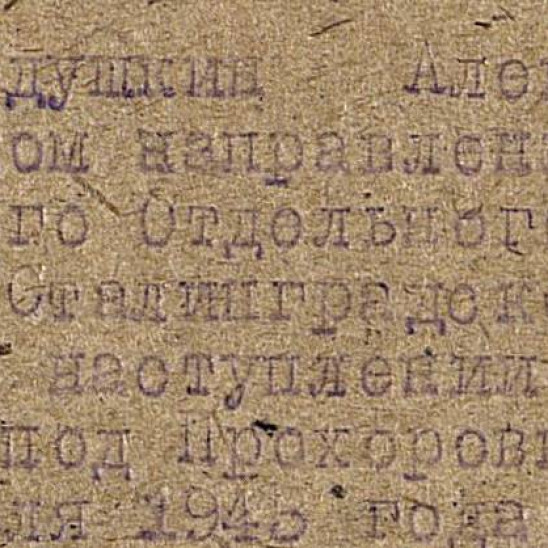 душкин Але
ом направлен
го Отдельног
Сталинградск
наступлении
под Прохоров
ля 1943 года